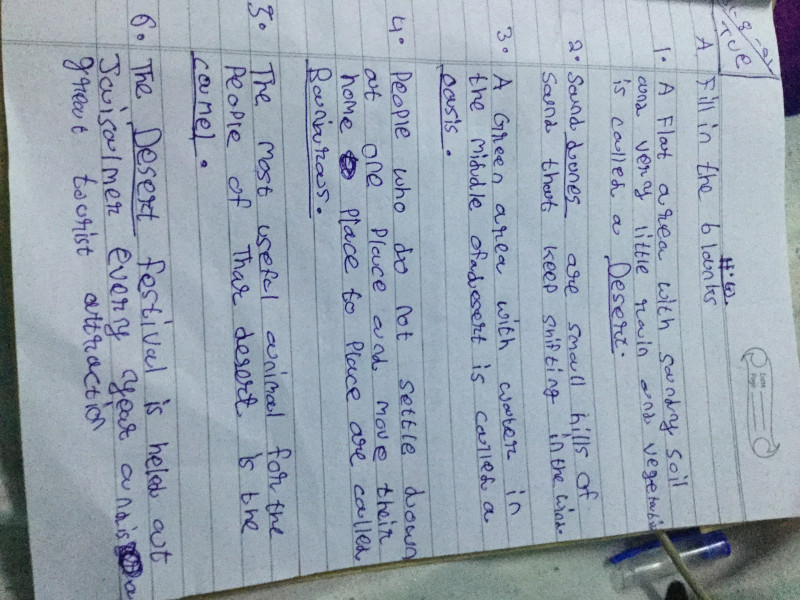 TUE
H.W.
A Fill in the blanks
1. A Flat area with sandy soil
and very little rain and vegetation
is called a Desert.
2. Sand dones are small hills of
sand that keep shifting in the wind.
3. A Green area with water in
the middle of a desert is called a
oasis.
4. People who do not settle down
at one place and move their
home place to place are called
5. The most useful animal for the
people of Thar desert is the
camel.
6. The Desert festival is held at
Jaisalmer every year and is a
great tourist attraction